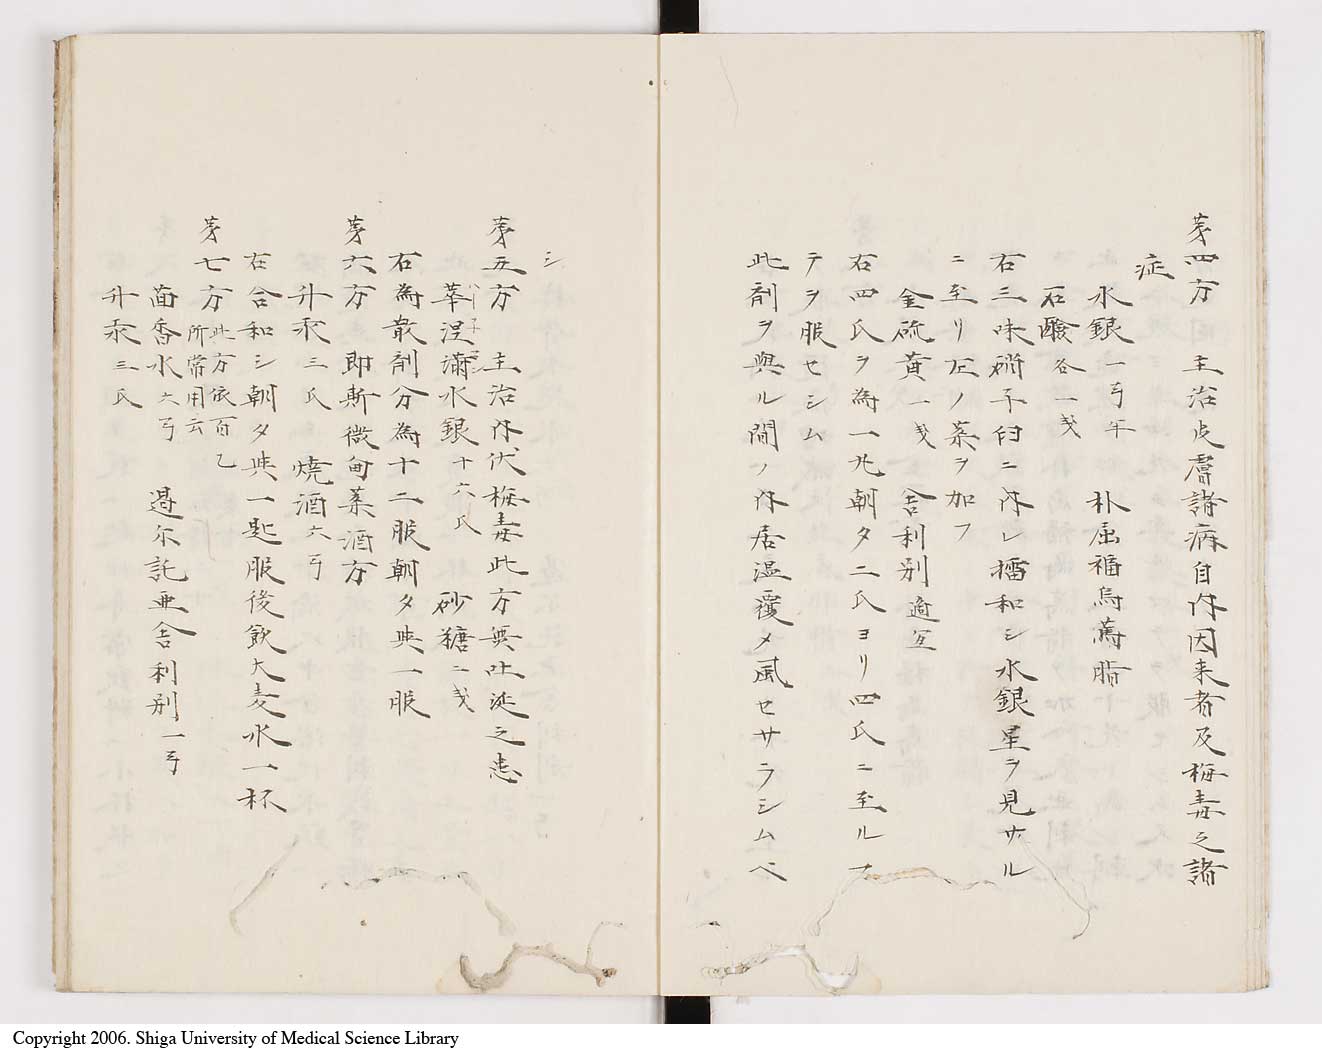 第四方 主治皮膚諸病自内因来者及梅毒之諸
症
水銀一弓半 朴屈福烏萬脂
石鹸各一戔
右三味硝子臼ニ内レ擂和シ水銀星ヲ見サル
ニ至リ左ノ薬ヲ加フ
金硫黄一戔 舎利別適宜
右四氏ヲ為一丸朝夕二氏ヨリ四氏ニ至ルマ
テヲ服セシム
此剤ヲ與ル間ノ内居温覆メ風セサラシムベ
シ
第五方 主治内伏梅毒此方無吐涎之患
華涅満水銀十六氏 砂糖二戔
右為散剤分為十二服朝夕與一服
第六方 即斯微甸薬酒方
升汞三氏 焼酒六弓
右合和シ朝夕與一匙服後飲大麦水一杯
第七方 此方依百乙
所常用云
茴香水六弓 過尓託亜舎利別一弓
升汞三氏
Copyright 2006. Shiga University of Medical Science Library